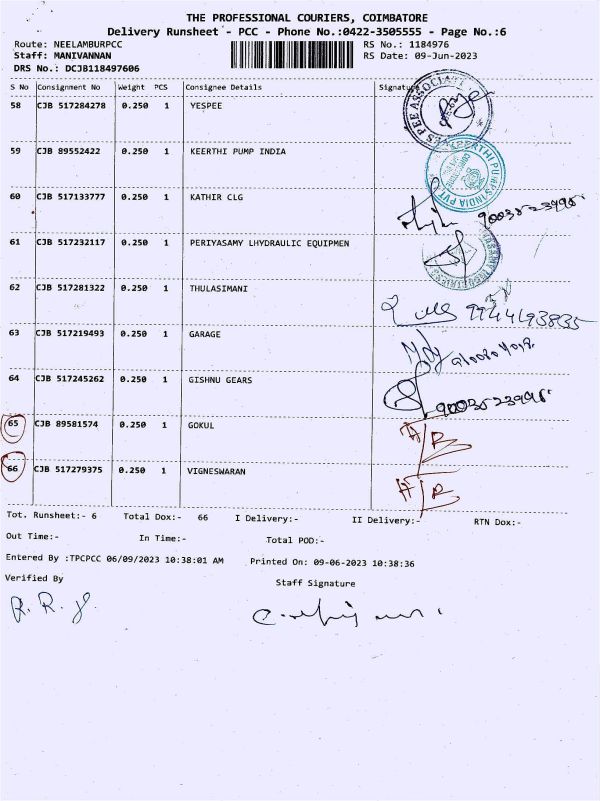 THE PROFESSIONAL COURIERS, COIMBATORE
Delivery Runsheet - PCC - Phone No.:0422-3505555 - Page No.:6
Route: NEELAMBURPCC RS No.: 1184976
Staff: MANIVANNAN RS Date: 09-Jun-2023
DRS No.: DCJB118497606
S No Consignment No Weight PCS Consignee Details Signature
58 CJB 517284278 0.250 1 YESPEE
59 CJB 89552422 0.250 1 KEERTHI PUMP INDIA
KEERTHI PUMPS INDIA PVT
60 CJB 517133777 0.250 1 KATHIR CLG
61 CJB 517232117 0.250 1 PERIYASAMY LHYDRAULIC EQUIPMEN
62 CJB 517281322 0.250 1 THULASIMANI
9944193835
63 CJB 517219493 0.250 1 GARAGE
64 CJB 517245262 0.250 1 GISHNU GEARS
65 CJB 89581574 0.250 1 GOKUL
66 CJB 517279375 0.250 1 VIGNESWARAN
Tot. Runsheet:- 6 Total Dox:- 66 I Delivery:- II Delivery:- RTN Dox:-
Out Time:- In Time:- Total POD:-
Entered By :TPCPCC 06/09/2023 10:38:01 AM Printed On: 09-06-2023 10:38:36
Verified By Staff Signature